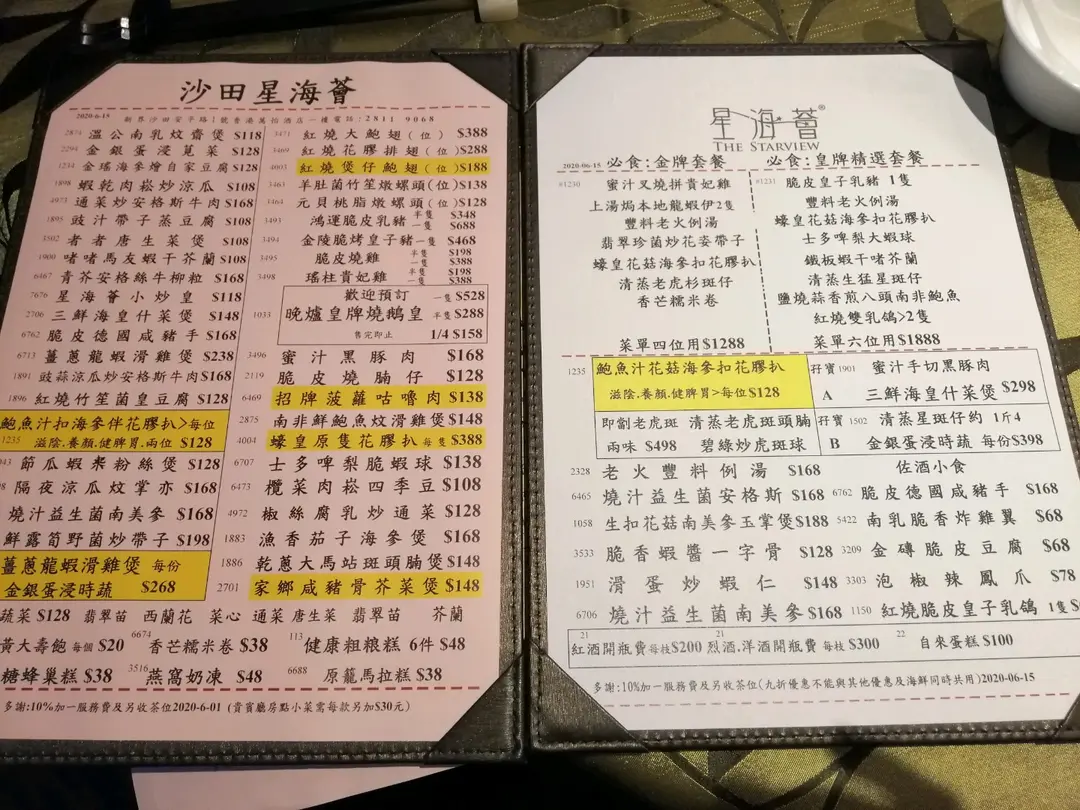 沙田星海薈
2020-6-15 新界沙田安平路1號香港萬怡酒店一樓電話:2811 9068
2874 溫公南乳炆齋煲 $118
2294 金銀蛋浸莧菜 $128
1234 金瑤海參燴自家豆腐 $128
1898 蝦乾肉崧炒涼瓜 $108
4973 通菜炒安格斯牛肉 $168
1895 豉汁帶子蒸豆腐 $108
3502 者者唐生菜煲 $108
1900 啫啫馬友蝦干芥蘭 $108
6467 青芥安格絲牛柳粒 $168
7676 星海薈小炒皇 $118
2706 三鮮海皇什菜煲 $148
6762 脆皮德國咸豬手 $168
6713 薑蔥龍蝦滑雞煲 $238
1891 豉蒜涼瓜炒安格斯牛肉 $168
1896 紅燒竹笙皇豆腐 $128
鮑魚汁扣海參伴花膠扒>每位
1235 滋陰.養顏.健脾胃.兩位 $128
節瓜蝦米粉絲煲 $128
隔夜涼瓜炆掌亦 $168
燒汁益生菌南美參 $168
鮮露筍野菌炒帶子 $198
薑蔥龍蝦滑雞煲 每份
金銀蛋浸時蔬 $268
3471 紅燒大鮑翅(位) $388
3469 紅燒花膠排翅(位) $288
4003 紅燒煲仔鮑翅(位) $188
3463 羊肚菌竹笙燉螺頭(位) $138
3464 元貝桃脂燉螺頭(位) $128
3493 鴻運脆皮乳豬 半隻 $348
一隻 $688
3494 金陵脆烤皇子豬 一隻 $468
3495 脆皮燒雞 半隻 $198
一隻 $388
3498 瑤柱貴妃雞 半隻 $198
一隻 $388
歡迎預訂 一隻 $528
1033 晚爐皇牌燒鵝皇 半隻 $288
售完即止 1/4 $158
3496 蜜汁黑豚肉 $168
2119 脆皮燒腩仔 $128
6469 招牌菠蘿咕嚕肉 $138
2875 南非鮮鮑魚炆滑雞煲 $148
4004 蠔皇原隻花膠扒 每隻 $388
6707 士多啤梨脆蝦球 $138
6473 欖菜肉崧四季豆 $108
4972 椒絲腐乳炒通菜 $128
1883 漁香茄子海參煲 $168
1886 乾蔥大馬站斑頭腩煲 $148
2701 家鄉咸豬骨芥菜煲 $148
蔬菜 $128 翡翠苗 西蘭花 菜心 通菜 唐生菜 翡翠苗 芥蘭
黃大壽飽 每個 $20 6674 香芒糯米卷 $38 113 健康粗粮糕 6件 $48
糖蜂巢糕 $38 3516 燕窩奶凍 $48 6688 原籠馬拉糕 $38
多謝:10%加一服務費及另收茶位2020-6-01 (貴賓廳房點小菜需每款另加$30元)
星海薈®
THE STARVIEW
2020-06-15 必食:金牌套餐 必食:皇牌精選套餐
#1230 蜜汁叉燒拼貴妃雞
上湯焗本地龍蝦伊2隻
豐料老火例湯
翡翠珍菌炒花姿帶子
蠔皇花菇海參扣花膠扒
清蒸老虎杉斑仔
香芒糯米卷
菜單四位用$1288
#1231 脆皮皇子乳豬 1隻
豐料老火例湯
蠔皇花菇海參扣花膠扒
士多啤梨大蝦球
鐵板蝦干啫芥蘭
清蒸生猛星斑仔
鹽燒蒜香煎八頭南非鮑魚
紅燒雙乳鴿>2隻
菜單六位用$1888
1235 鮑魚汁花菇海參扣花膠扒
滋陰.養顏.健脾胃>每位$128
孖寶 1901 蜜汁手切黑豚肉
A 三鮮海皇什菜煲 $298
即劏老虎斑 清蒸老虎斑頭腩
兩味 $498 碧綠炒虎斑球
孖寶 1502 清蒸星斑仔約 1斤4
B 金銀蛋浸時蔬 每份$398
2328 老火豐料例湯 $168 佐酒小食
6465 燒汁益生菌安格斯 $168 6762 脆皮德國咸豬手 $168
1058 生扣花菇南美參玉掌煲 $188 5422 南乳脆香炸雞翼 $68
3533 脆香蝦醬一字骨 $128 3209 金磚脆皮豆腐 $68
1951 滑蛋炒蝦仁 $148 3303 泡椒辣鳳爪 $78
6706 燒汁益生菌南美參 $168 1150 紅燒脆皮皇子乳鴿 1隻
21 紅酒開瓶費 每枝$200 21 烈酒.洋酒開瓶費 每枝 $300 22 自來蛋糕 $100
多謝:10%加一服務費及另收茶位(九折優惠不能與其他優惠及海鮮同時共用)2020-06-15